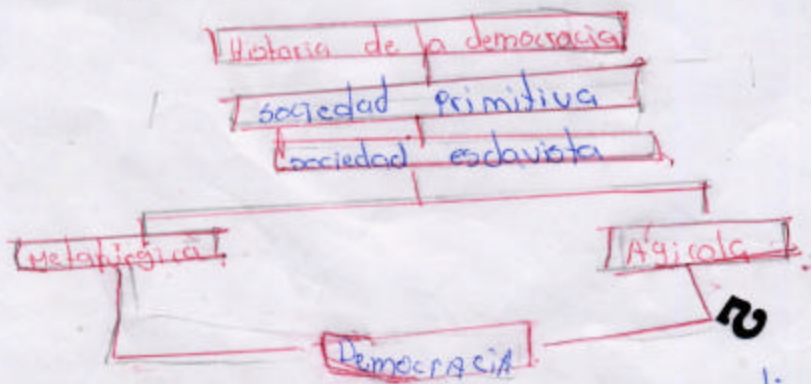 Historia de la democracia
sociedad primitiva
sociedad esclavista
Metalúrgica
Agicola
Democracia
2